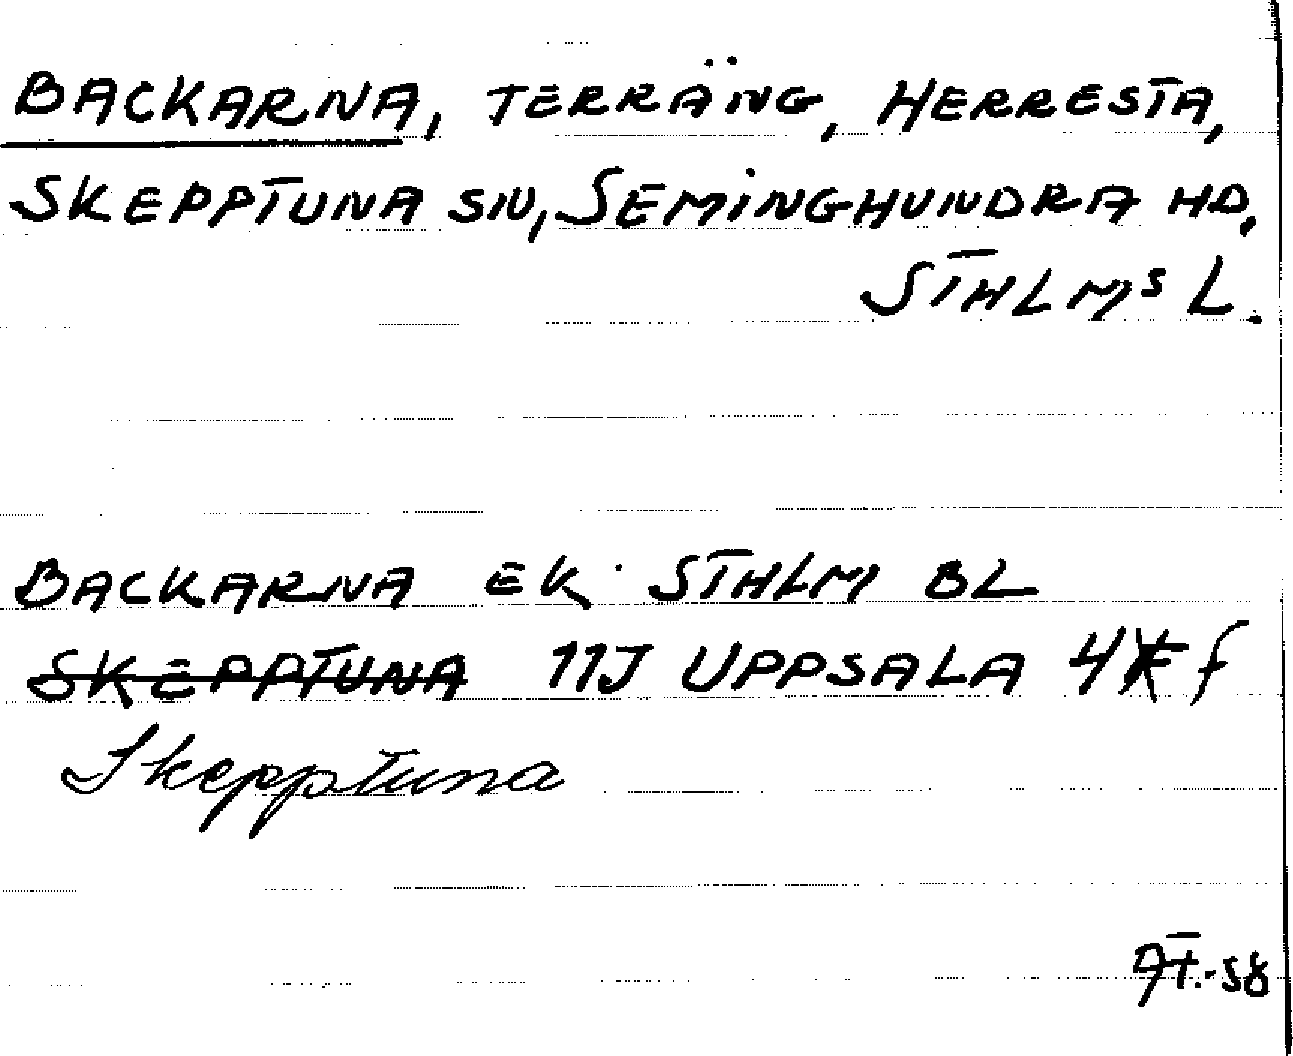 BACKARNA, TERRÄNG, HERRESTA,
SKEPPTUNA SN, SEMINGHUNDRA HD,
STHLMS L.
BACKARNA EK. STHLM BL
SKEPPTUNA 11J UPPSALA 4 f
Skepptuna
AT.-58